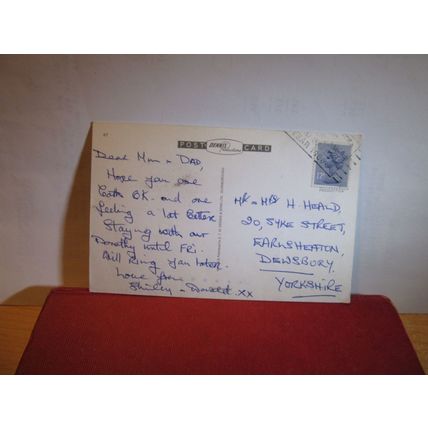 POST DENNIS CARD
Dear Mum & DAD,
Hope you are
both OK. and are
feeling a lot better
Staying with our
Dorothy until FRI.
Will Ring you later.
Love from
Shirley & Donald. xx
MR & MRS H. HEALD,
20, SYKE STREET,
EARLSHEATON,
DEWSBURY,
YORKSHIRE